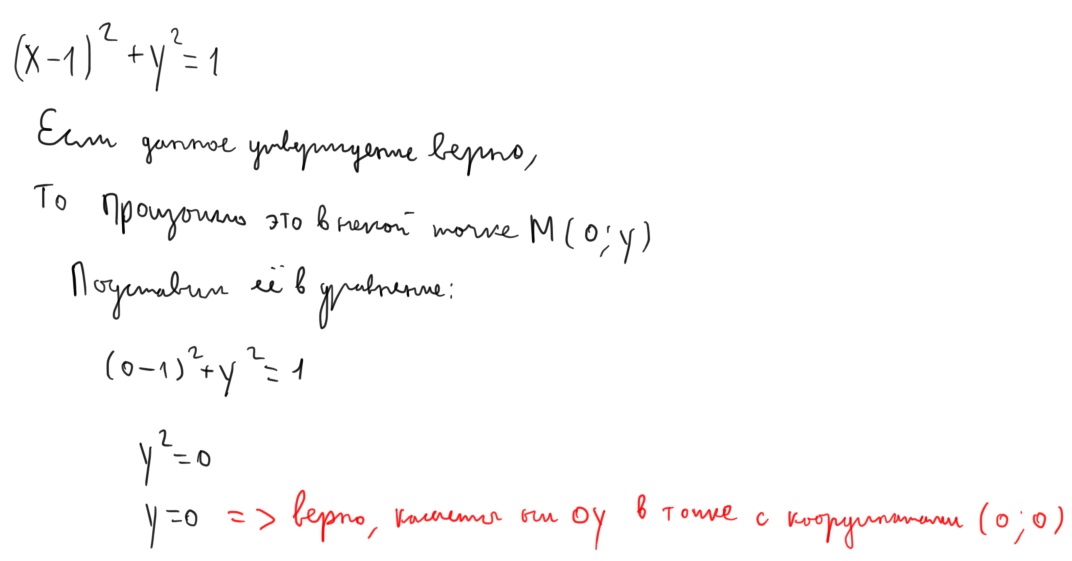 (x-1)² + y² = 1
Если данное утверждение верно,
То произошло это в некой точке M(0; y)
Подставим её в уравнение:
(0-1)² + y² = 1
y² = 0
y=0 => верно, касается оси OY в точке с координатами (0;0)